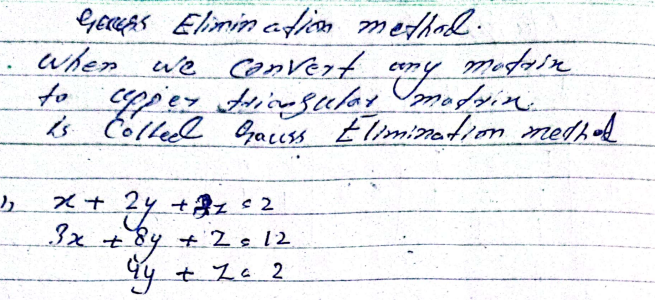 Gauss Elimination method.
When we Convert any matrix
to upper triangular matrix
is Called Gauss Elimination method
1) x + 2y + z = 2
3x + 8y + z = 12
4y + z = 2